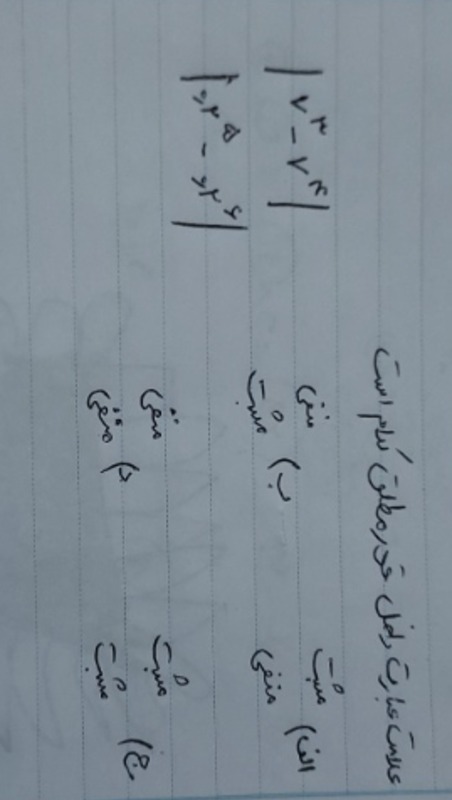 علامت عبارت داخل قدر مطلق کدام است
| ۷^۳ − ۷^۴ |
| ۰٫۲^۵ − ۰٫۲^۶ |
الف) مثبت منفی
ب) منفی مثبت
ج) مثبت مثبت
د) منفی منفی